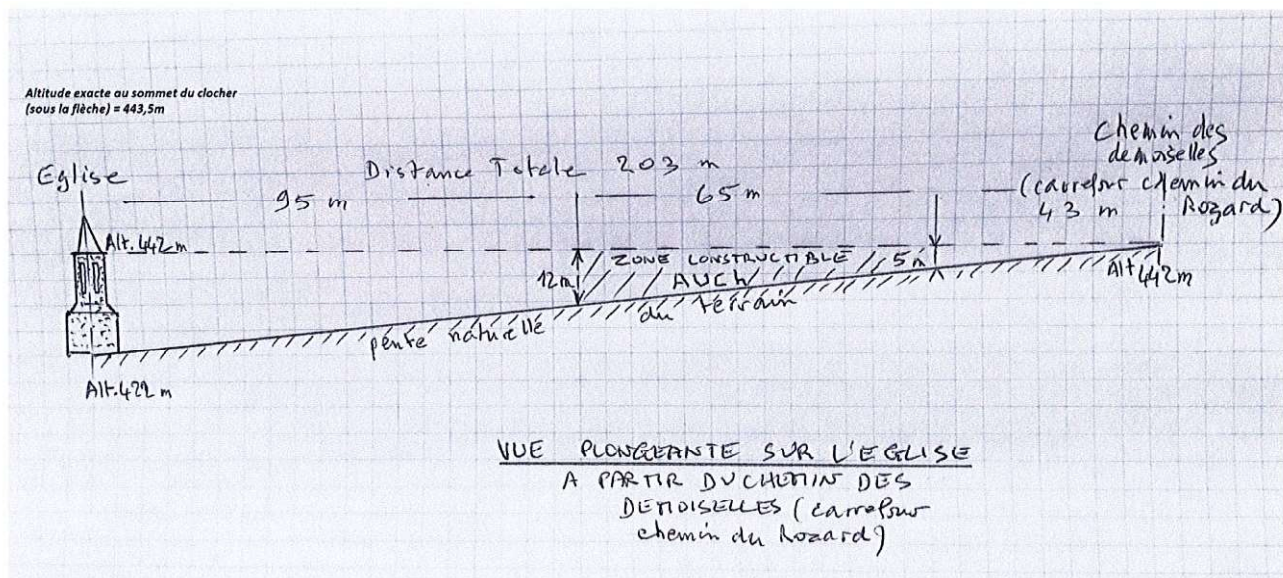 Altitude exacte au sommet du clocher
(sous la flèche) = 443,5m
Eglise
Distance Totale 203 m
95 m
65 m
Chemin des
demoiselles
(carrefour chemin du
43 m Rozard)
Alt.442 m
ZONE CONSTRUCTIBLE
AUCH
12m
5m
Alt 442m
pente naturelle du terrain
Alt.422 m
VUE PLONGEANTE SUR L'EGLISE
A PARTIR DU CHEMIN DES
DEMOISELLES (carrefour
chemin du Rozard)